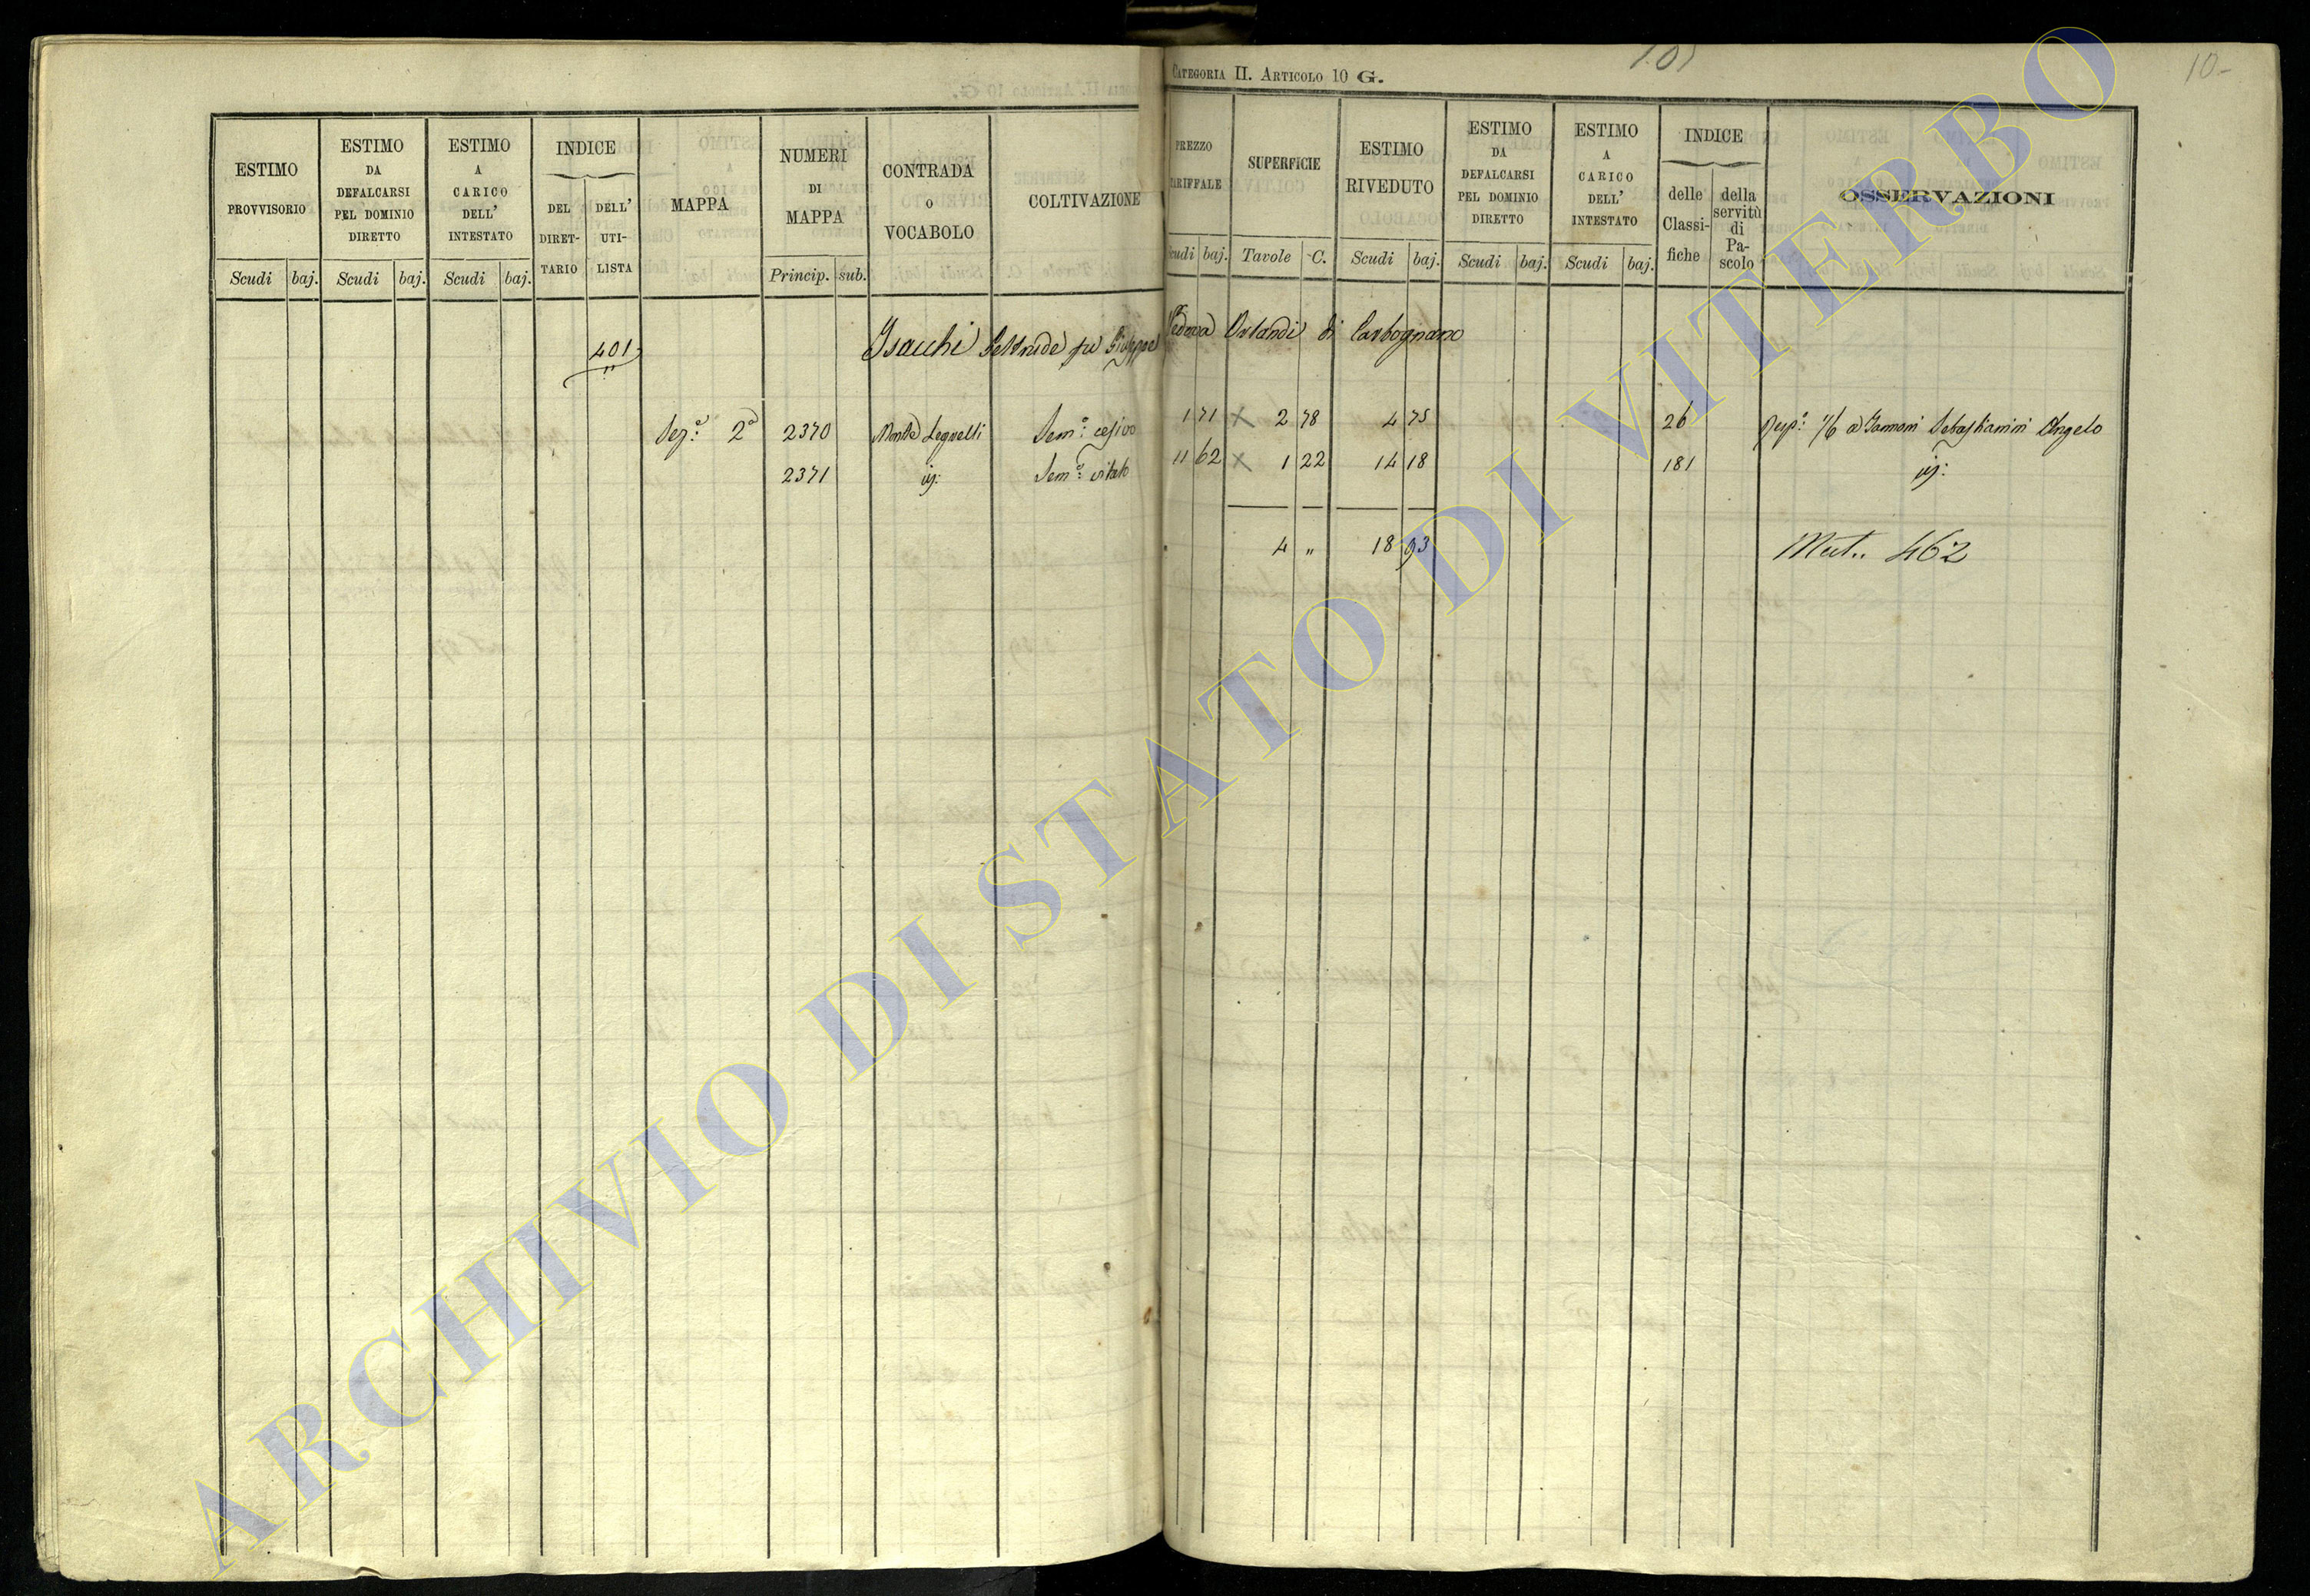 CATEGORIA II. ARTICOLO 10 G.
10-
ESTIMO PROVVISORIO
Scudi baj.
ESTIMO DA DEFALCARSI PEL DOMINIO DIRETTO
Scudi baj.
ESTIMO A CARICO DELL' INTESTATO
Scudi baj.
INDICE
DEL DIRET-TARIO
DELL' UTI-LISTA
MAPPA
NUMERI DI MAPPA
Princip. sub.
CONTRADA O VOCABOLO
COLTIVAZIONE
PREZZO TARIFFALE
Scudi baj.
SUPERFICIE
Tavole C.
ESTIMO RIVEDUTO
Scudi baj.
ESTIMO DA DEFALCARSI PEL DOMINIO DIRETTO
Scudi baj.
ESTIMO A CARICO DELL' INTESTATO
Scudi baj.
INDICE
delle Classi-fiche
della servitù di Pa-scolo
OSSERVAZIONI
401 Isacchi Geltrude fu Giuseppe Vedova Orlandi di Carbognano
Sez.e 2a 2370 Monte Sem.o cesivo 1 71 2 78 4 75 26 1/6 a Sebastianini Angelo
2371 ij: Sem.o vitato 11 62 1 22 14 18 181 ij:
4 " 18 93 Mut.. 462
ARCHIVIO DI STATO DI VITERBO